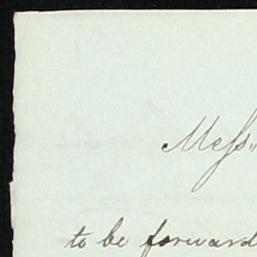 Mess
to be forward